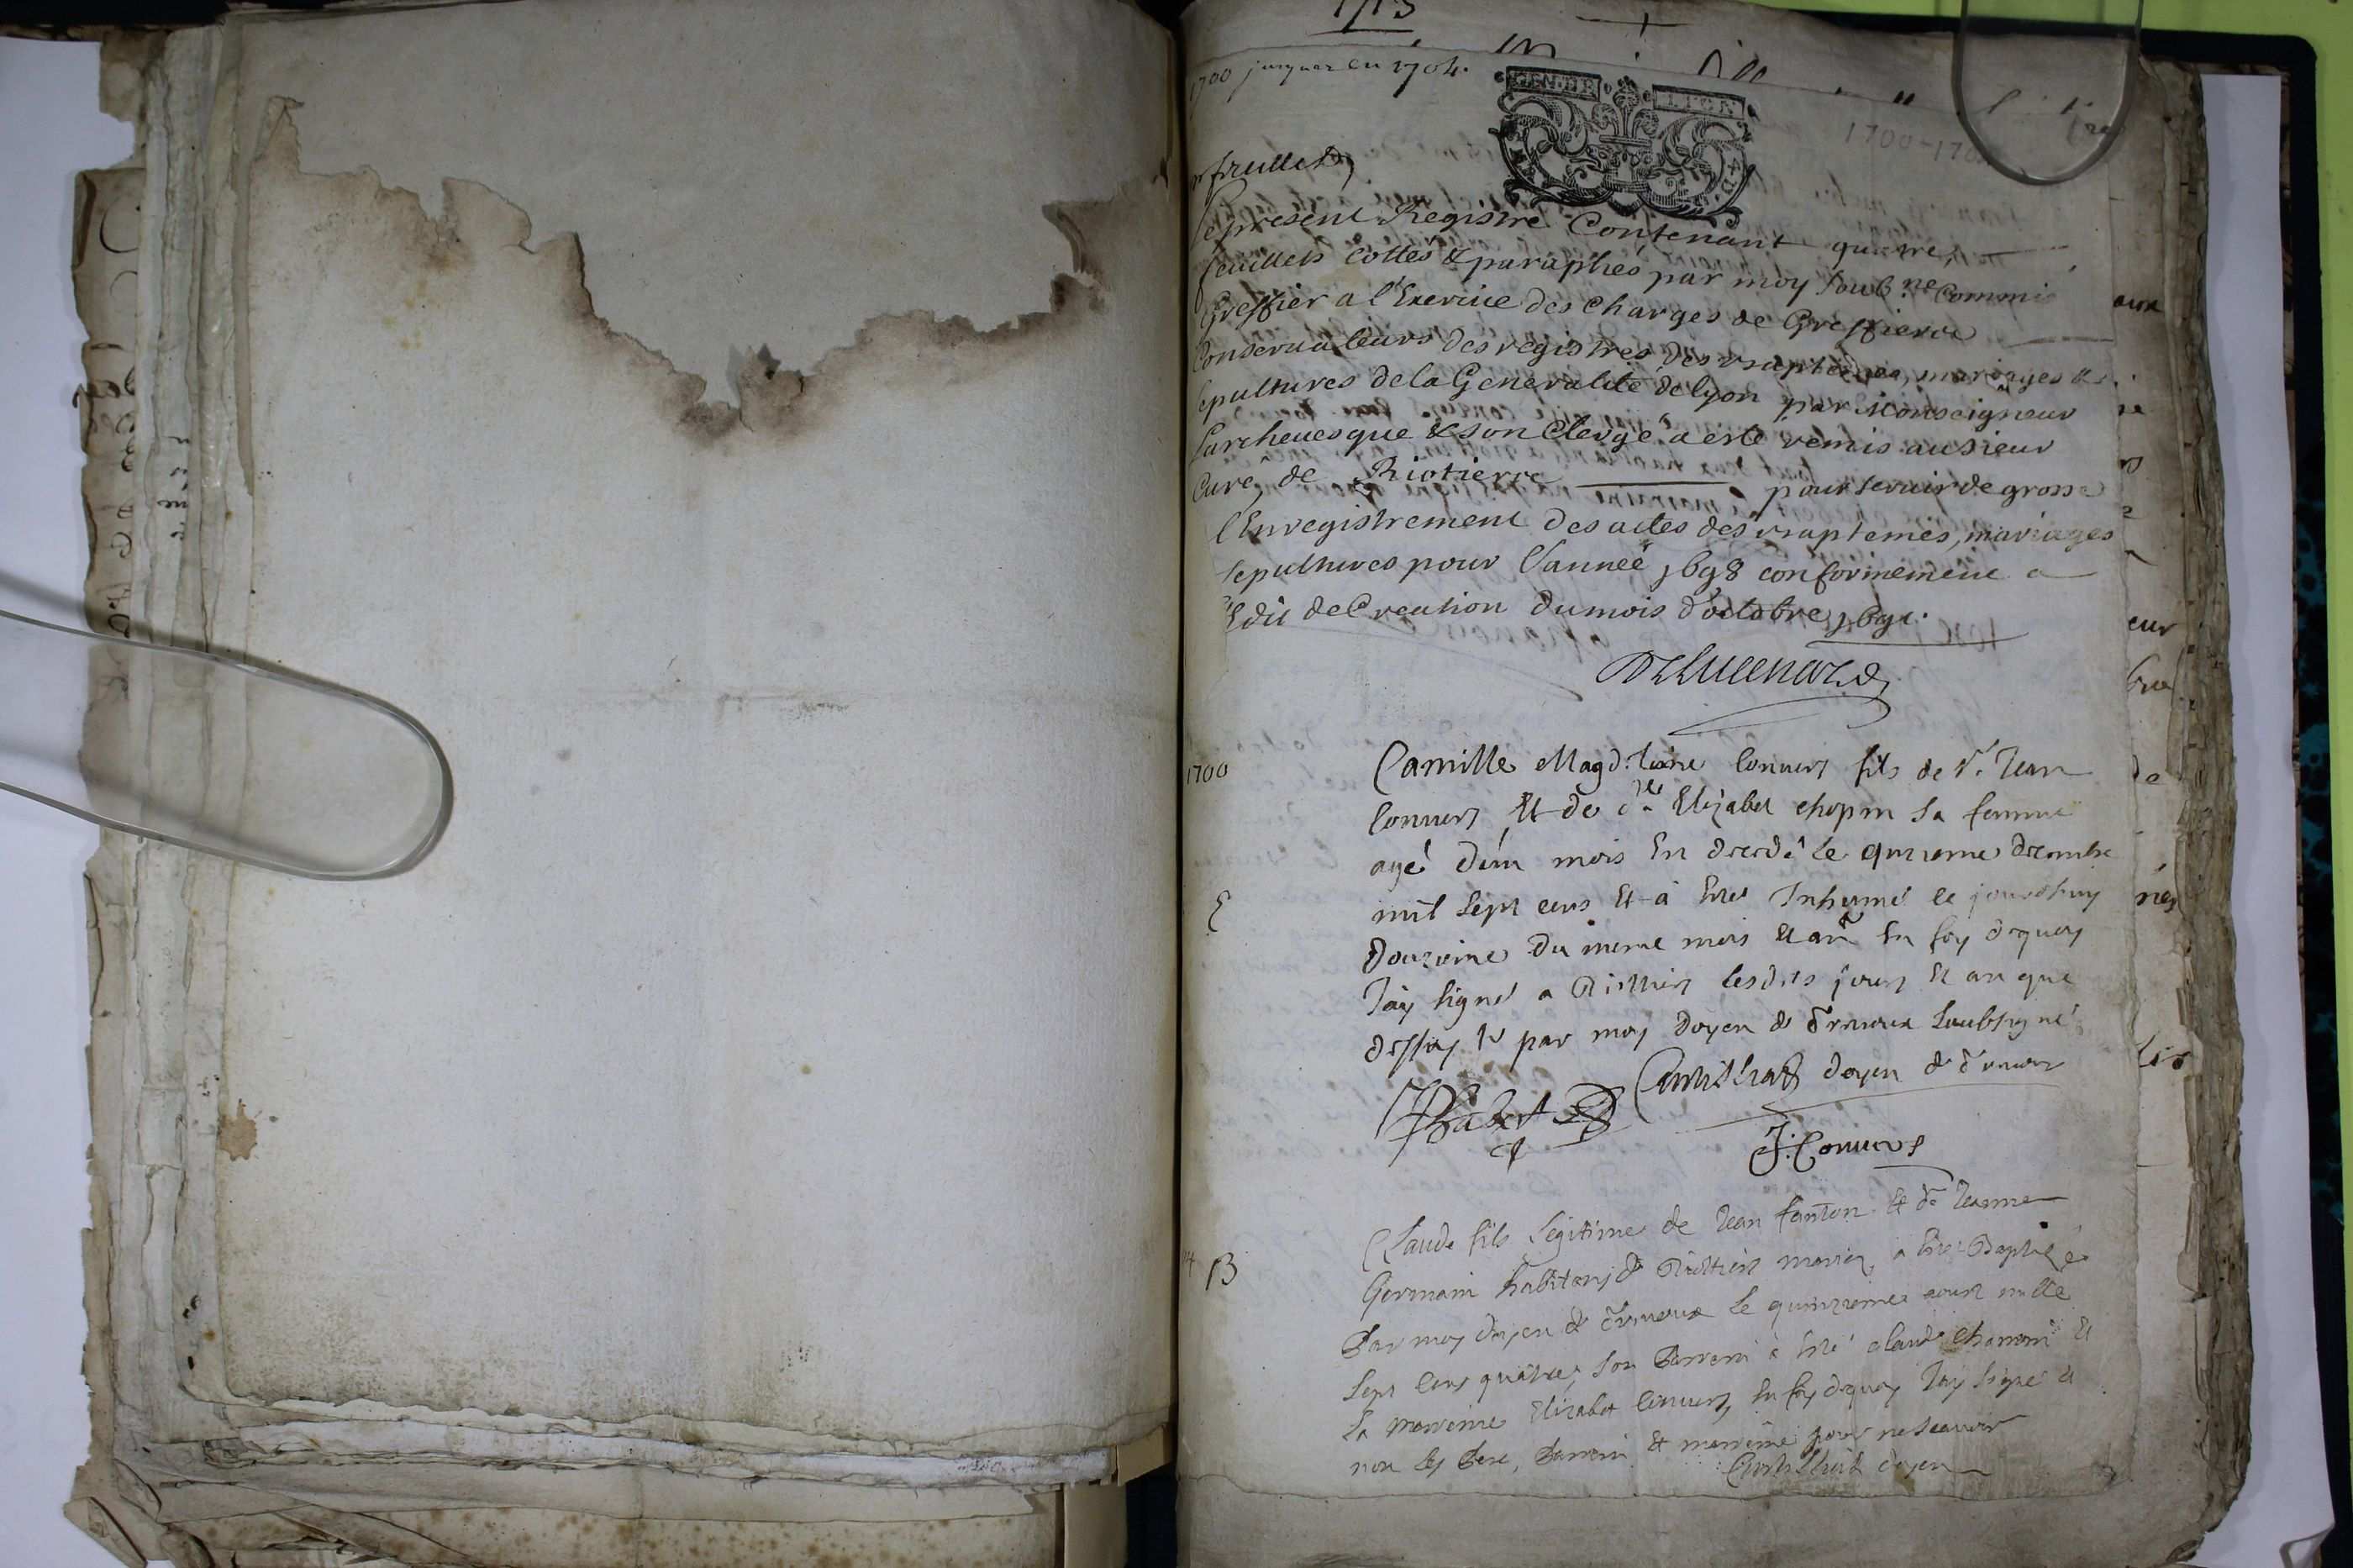 1713
1700 jusques en 1704.
GEN. DE LYON
1700-170
feuillet
Le present Registre Contenant quatre,
feuillets Cottés & paraphés par moy soub.ne Commi
Greffier a l'Exercice des Charges de Greffiers
Conservateurs des registres des Baptemes, mariages &
sepultures de la Generalité de Lyon par Monseigneur
Larchevesque & son Clergé a esté remis au sieur
Curé, de Riotierre pour servir de grosse
l'Enregistrement des actes des Baptemes, mariages
sepultures pour l'année 1698 conformement a
Edit de Creation du mois d'octobre 1691.
1700
Camille Magd.leine Convers fils de Sr. Jean
Convers Et de dlle Elizabet chopin sa femme
agé d'un mois Est decedé le onzieme decembre
mil Sept cens Et à Esté Inhumé le jourdhuy
E
Douzieme du meme mois Et an En foy dequoy
Jay signé a Riottiers lesdits jours Et an que
dessus Et par moy Doyen de Trevoux Soubsigné
doyen de Trevoux
J: Convers
B
Claude fils Legitime de Jean fanton Et de Jeanne
Germain habitans de Riottiers mariez, à Esté Baptisé
Par moy doyen de Trevoux Le quinzieme aoust mille
Sept Cens quatre, Son Parrain à Esté claude Et
La marreine Elizabet Convers, En foy dequoy Jay Signé Et
non les Pere, Parrain Et marreine pour ne scavoir
doyen